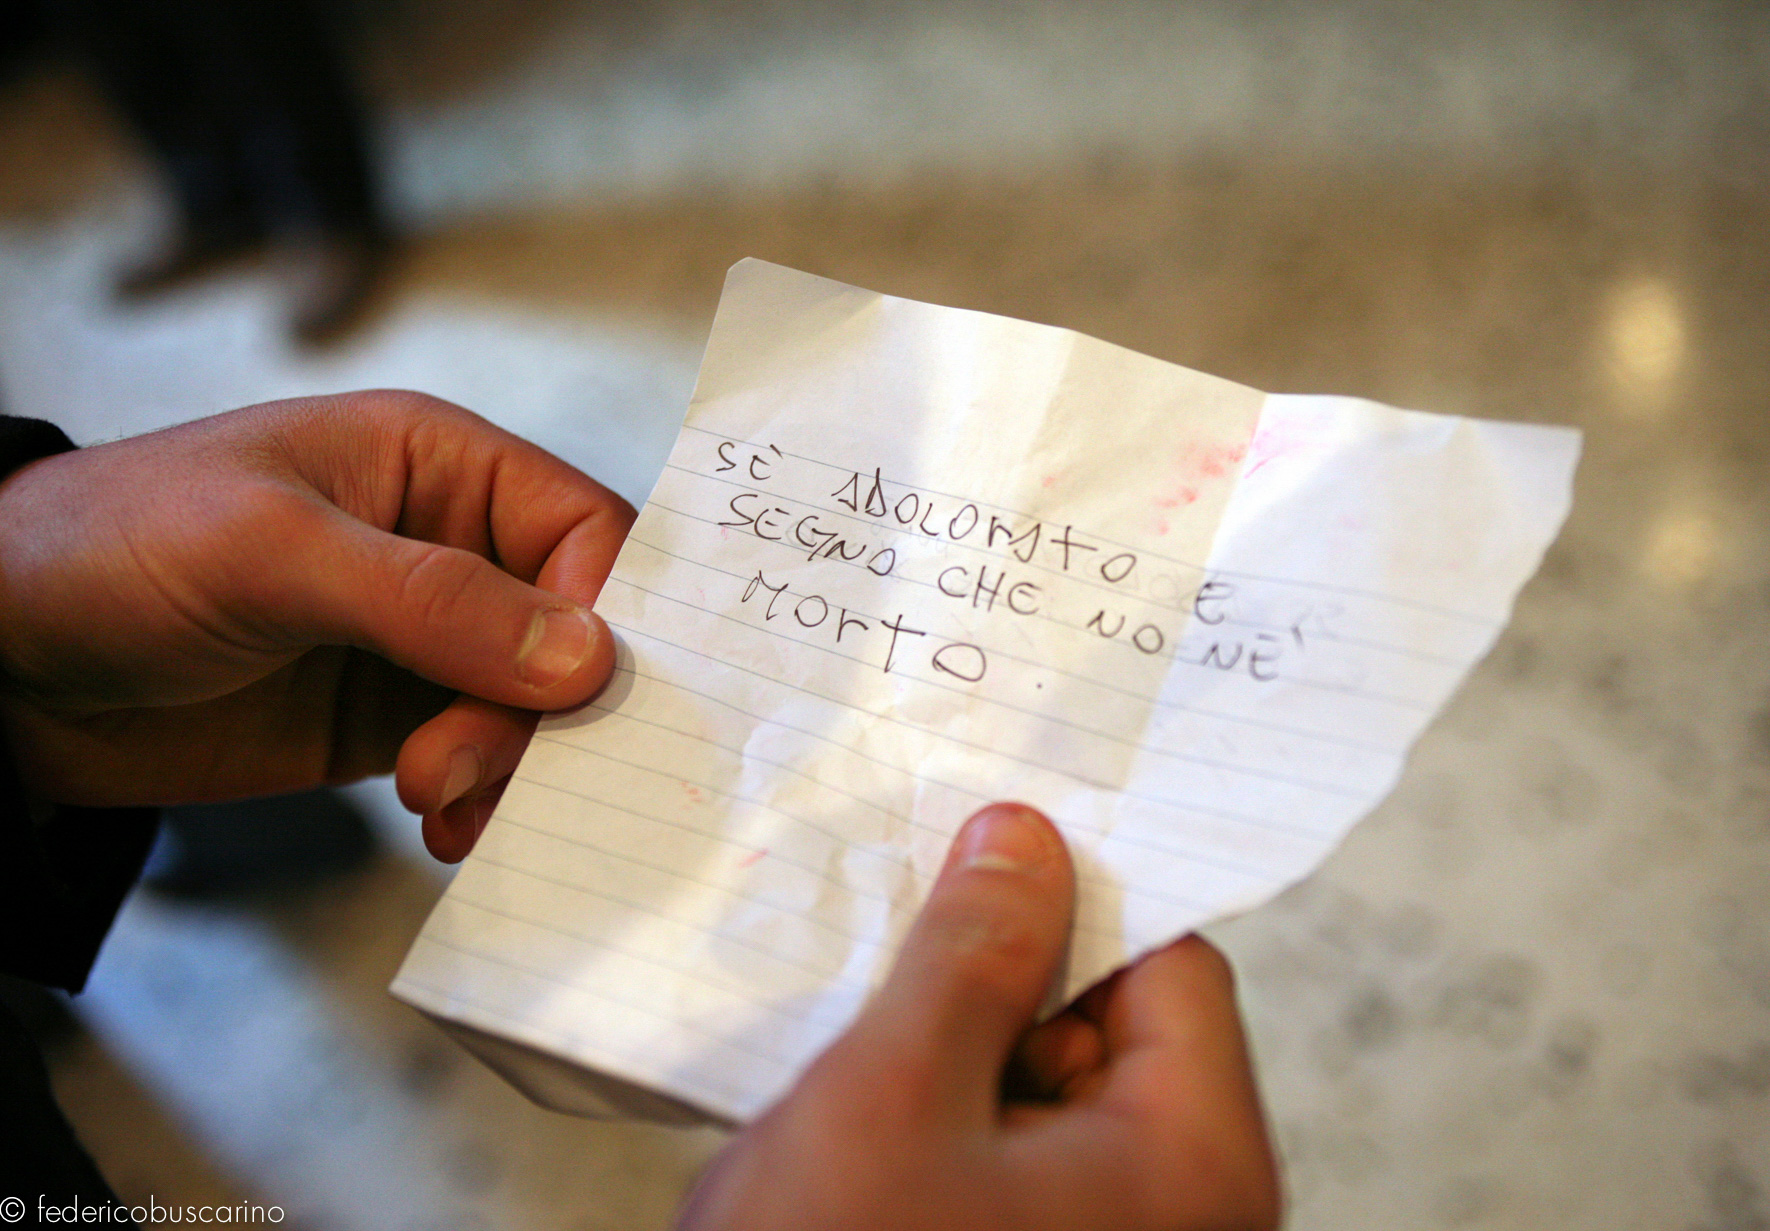 SÈ ADOLORATO E
SEGNO CHE NO NÈ
MORTO.
© federicobuscarino